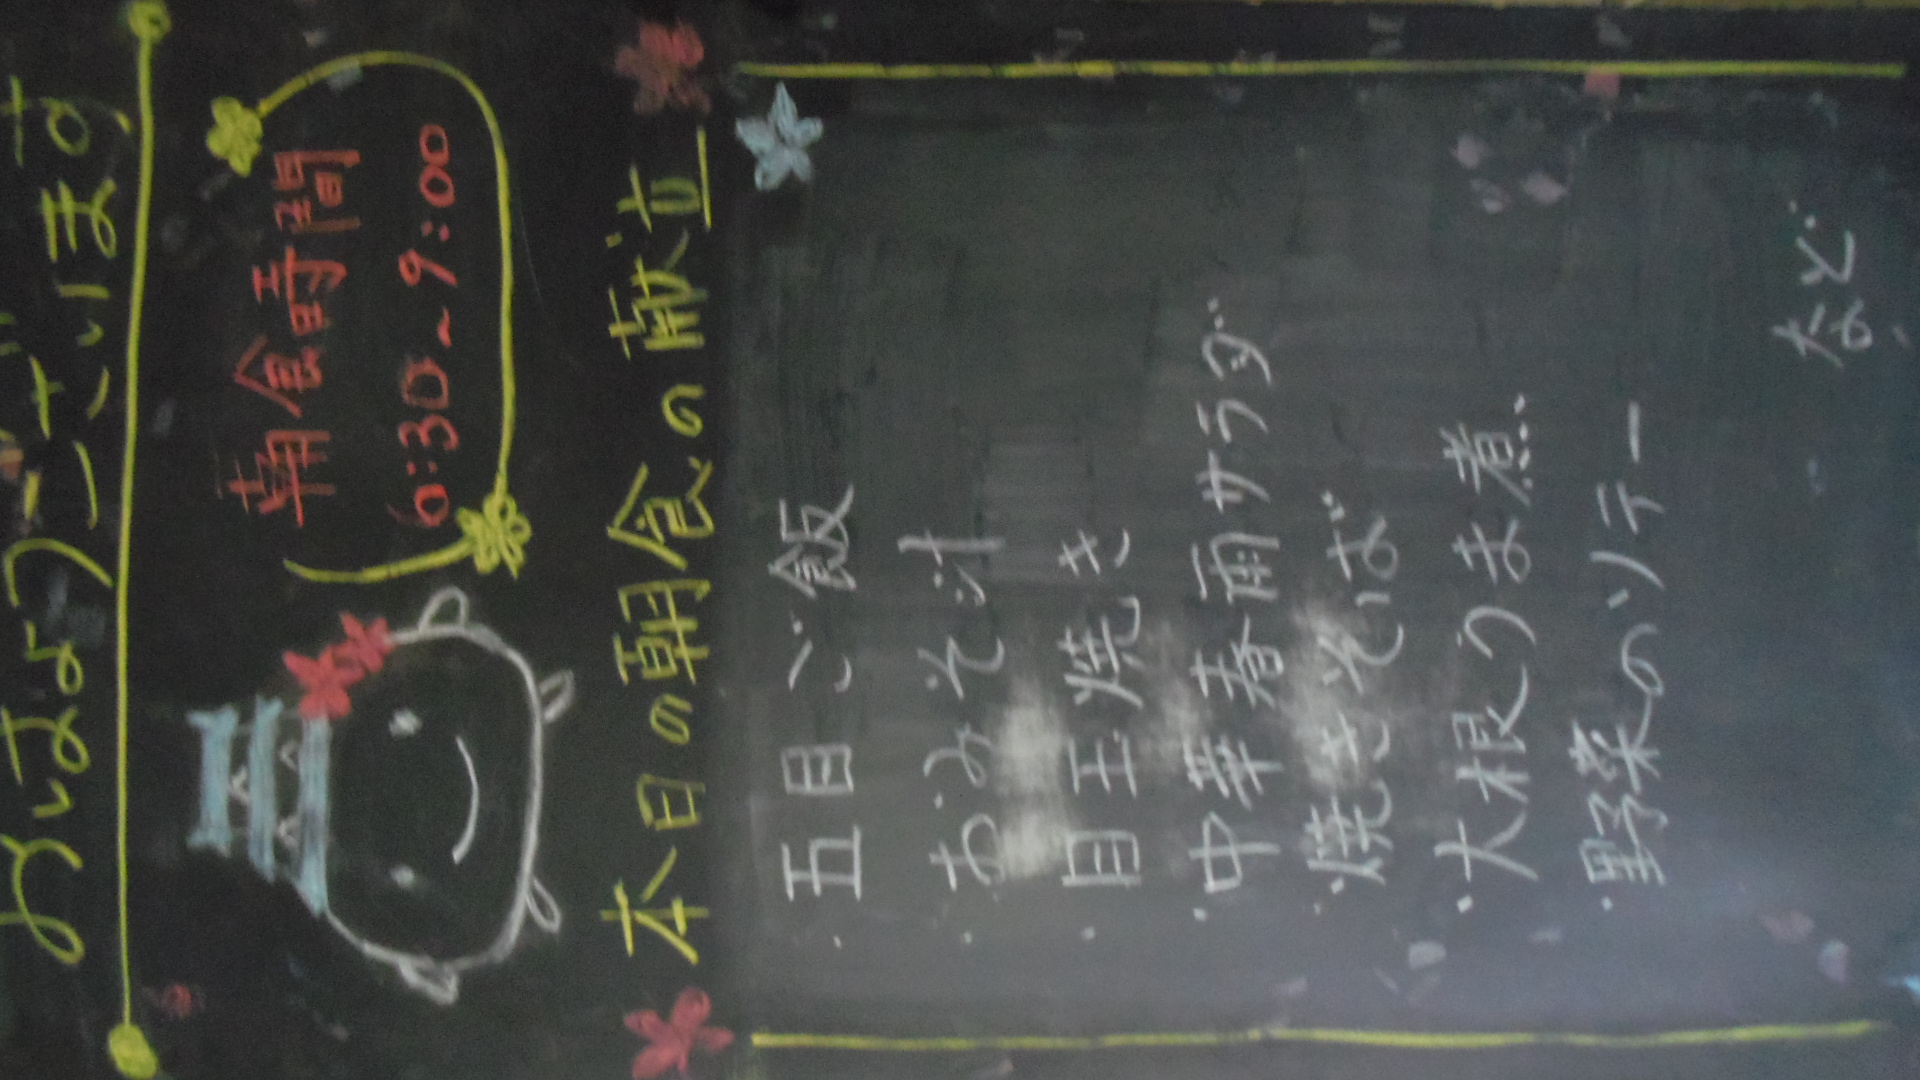 おはようございます
朝食時間
6:30~9:00
本日の朝食の献立
・五目ご飯
・おみそ汁
・目玉焼き
・中華春雨サラダ
・焼きそば
・大根うま煮
・野菜のソテー
など